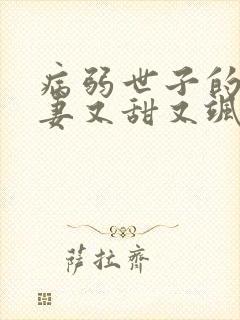 病弱世子的
妻又甜又飒
萨拉齐